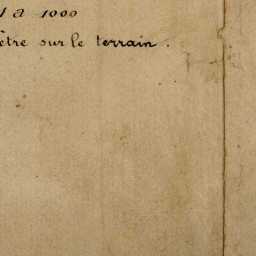 1 à 1000
être sur le terrain.